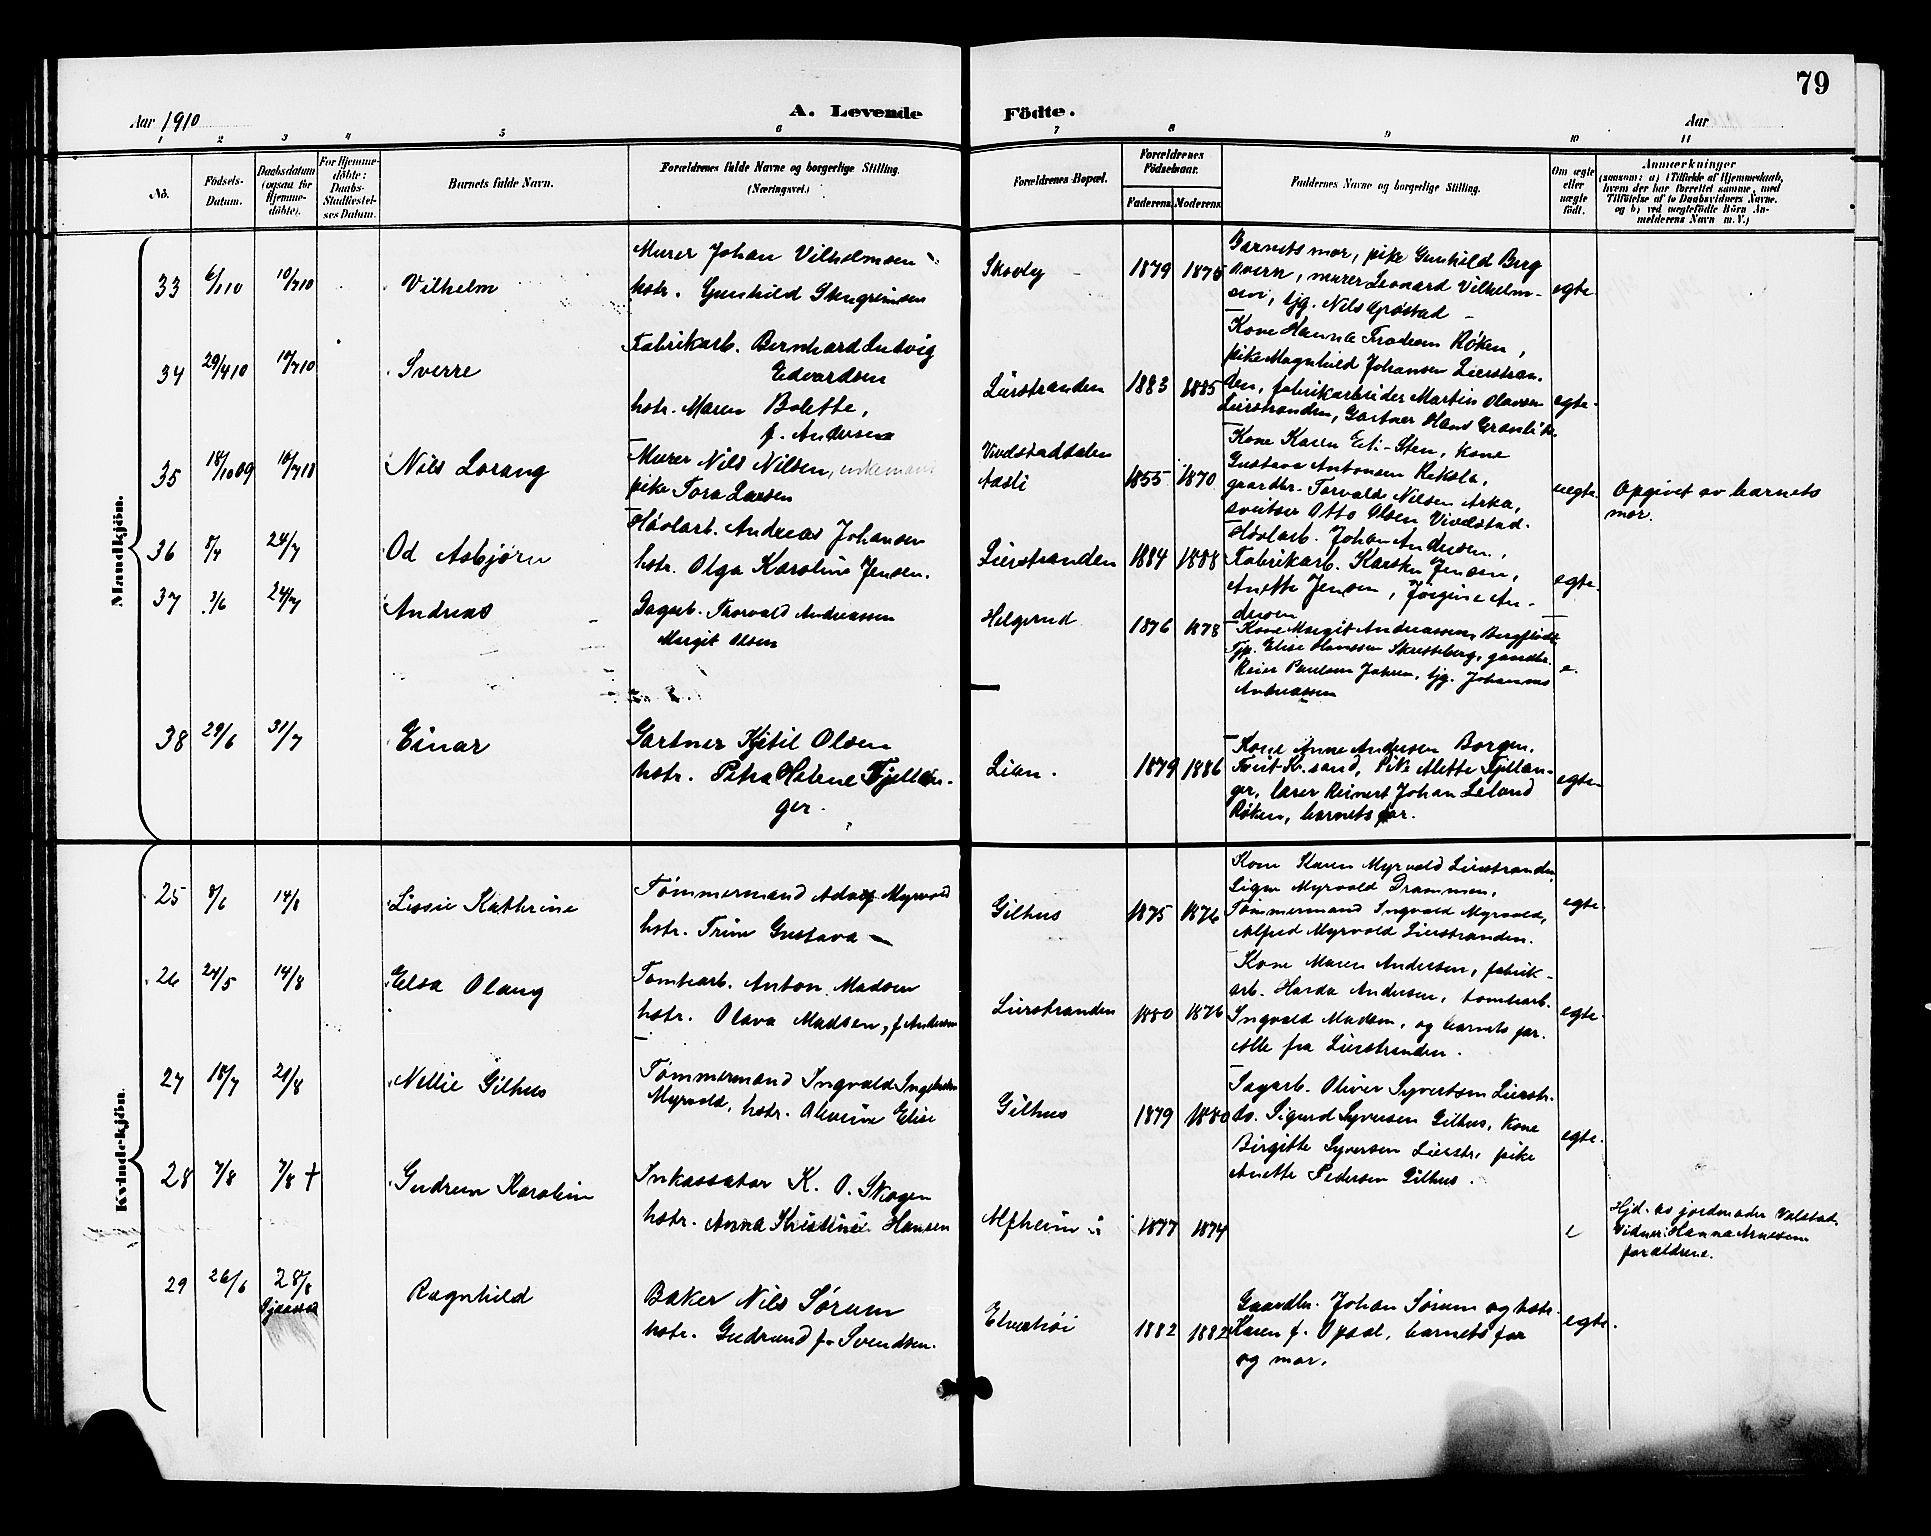 79
Aar 1910
A. Levende
Födte.
Aar
1 2 3 4 5 6 7 8 9 10 11
No.
Födsels-
Datum.
Daabsdatum
(ogsaa for
Hjemme-
döbte).
For Hjemme-
döbte:
Daabs-
Stadfæstel-
ses Datum.
Barnets fulde Navn.
Forældrenes fulde Navne og borgerlige Stilling.
(Næringsvei.)
Forældrenes Bopæl.
Forældrenes
Födselsaar.
Faderens. Moderens.
Faddernes Navne og borgerlige Stilling.
Om ægte
eller
uægte
født.
Anmærkninger
(saasom: a) i Tilfælde af Hjemmedaab,
hvem der har forrettet samme, med
Tilföielse af to Daabsvidners Navne.
og b) ved uægtefödte Börn An-
melderens Navn m. V.)
Mandkjön.
33 6/1 10 10/7 10 Vilhelm
Murer Johan Vilhelmsen
hstr. Gunhild Stengrimsen
Skovly 1879 1875
Barnets mor, pike Gunhild Berg
Overn, murer Leonard Vilhelm-
sen, tjg. Nils Grøstad
egte
34 29/4 10 10/7 10 Sverre
Fabrikarb. Bernhard Ludvig
Edvardsen
hstr. Maren Bolette,
f. Andersen
Lierstranden 1883 1885
Kone Hanna Røken,
pike Magnhild Johansen Lierstran-
den, fabrikarbeider Martin Olavsen
Lierstranden, Gartner Hans Granli
egte
35 18/10 09 10/7 10 Nils Lorang
Murer Nils Nilsen, enkemand
pike Tora Larsen
Vivelstaddalen
Aasli 1855 1870
Kone Karen Sten, Kone
Gustava Antonsen Rekola,
gaardbr. Torvald Nilsen Aska,
sveitser Otto Olsen Vivelstad.
uegte
Opgivet av barnets
mor.
36 8/4 24/7 Od Asbjørn
Høvlarb. Andreas Johansen
hstr. Olga Karoline Jensen.
Lierstranden 1884 1888
Høvlarb. Johan Andersen,
Fabrikarb. Karsten Jensen,
Anette Jensen, Jørgine An-
dersen
egte.
37 3/6 24/7 Andreas
Dagarb. Thorvald Andreassen
Margit Olsen
Helgerud 1876 1878
Kone Margit Andreassen, Bergflødt
Tjp. Elise Hanssen Skretteberg, gaardbr.
Reier Paulsen Jahren, tjg. Johannes
Andreassen
e.
38 29/6 31/7 Einar
Gartner Kjetil Olsen
hstr. Petra Helene Fjellan-
ger.
Lien. 1879 1886
Kone Anne Andersen Borgen.
Tveit Kr.sand, Pike Alette Fjellan-
ger, lærer Reinert Johan Leland
Røken, barnets far.
egte
Kvindekjön.
25 8/6 14/8 Lissie Kathrine
Tømmermand Adolf Myrvold
hstr. Trine Gustava —
Gilhus 1875 1876
Kone Karen Myrvold Lierstranden
Signe Myrvold Drammen,
Tømmermand Ingvald Myrvold,
Alfred Myrvold Lierstranden.
egte.
26 24/5 14/8 Elsa Olaug
Tomtearb. Anton Madsen
hstr. Olava Madsen, f Andersen
Lierstranden 1880 1876
Kone Maren Andersen, fabrik-
arb. Harda Andersen, tomtearb.
Ingvald Madsen, og barnets far.
Alle fra Lierstranden.
egte.
27 18/7 21/8 Nellie Gilhus
Tømmermand Ingvald Ingebretsen
Myrvold, hstr. Oliveine Elise
Gilhus 1879 1880
Sagarb. Oliver Syvertsen Lierstr.
do. Sigurd Syversen Gilhus, Kone
Birgitte Syversen Lierstr., pike
Anette Pedersen Gilhus.
egte.
28 7/8 7/8 † Gudrun Karoline
Inkassator K. O. Skogen
hstr. Anna Kristine Hansen
Alfheim 1877 1874
e
Hjd. av jordemoder Valstad.
Vidner: Hanna Arnesen
forældrene.
29 26/6 28/8 Ragnhild
Baker Nils Sørum
hstr. Gudrund f. Svendsen.
Elverhøi 1882 1882
Gaardbr. Johan Sørum og hstr.
Karen f. Opsal, barnets far
og mor.
egte.